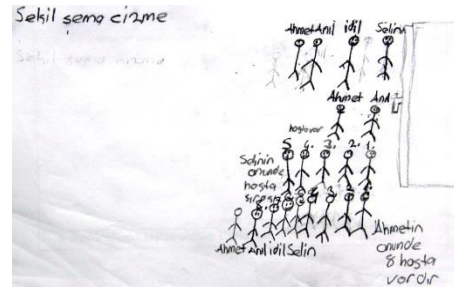 Şekil şema çizme
Ahmet Anıl idil Selin
Ahmet Anıl
hasta var
5. 4. 3. 2. 1.
Selinin
önünde
hasta
Ahmet Anıl idil Selin
Ahmetin
önünde
8 hasta
vardır